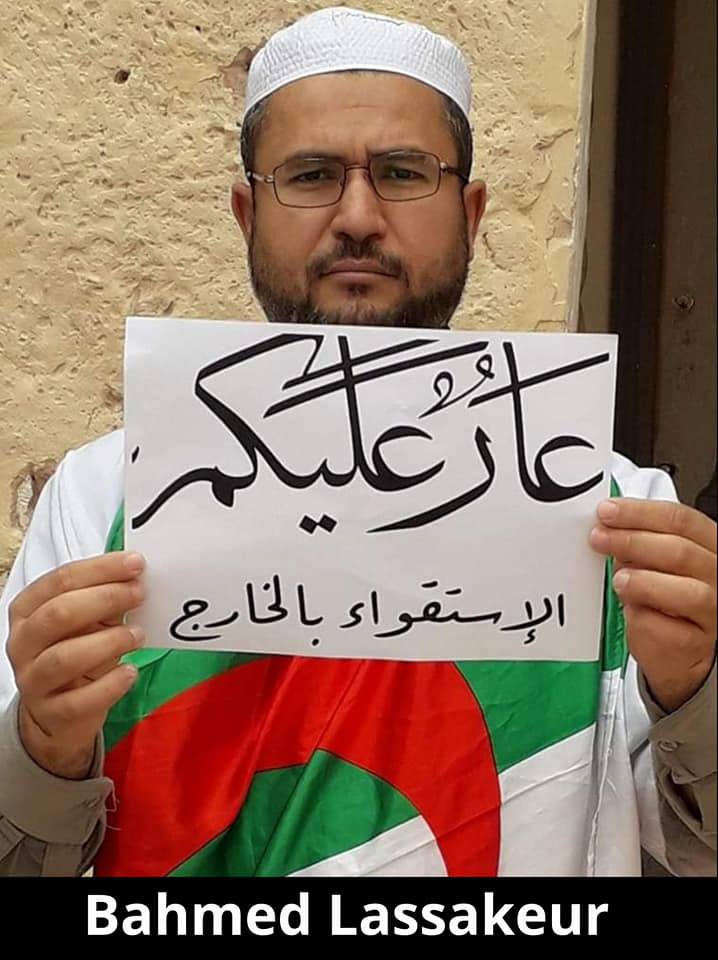 عارٌ عليكم
الإستقواء بالخارج
Bahmed Lassakeur